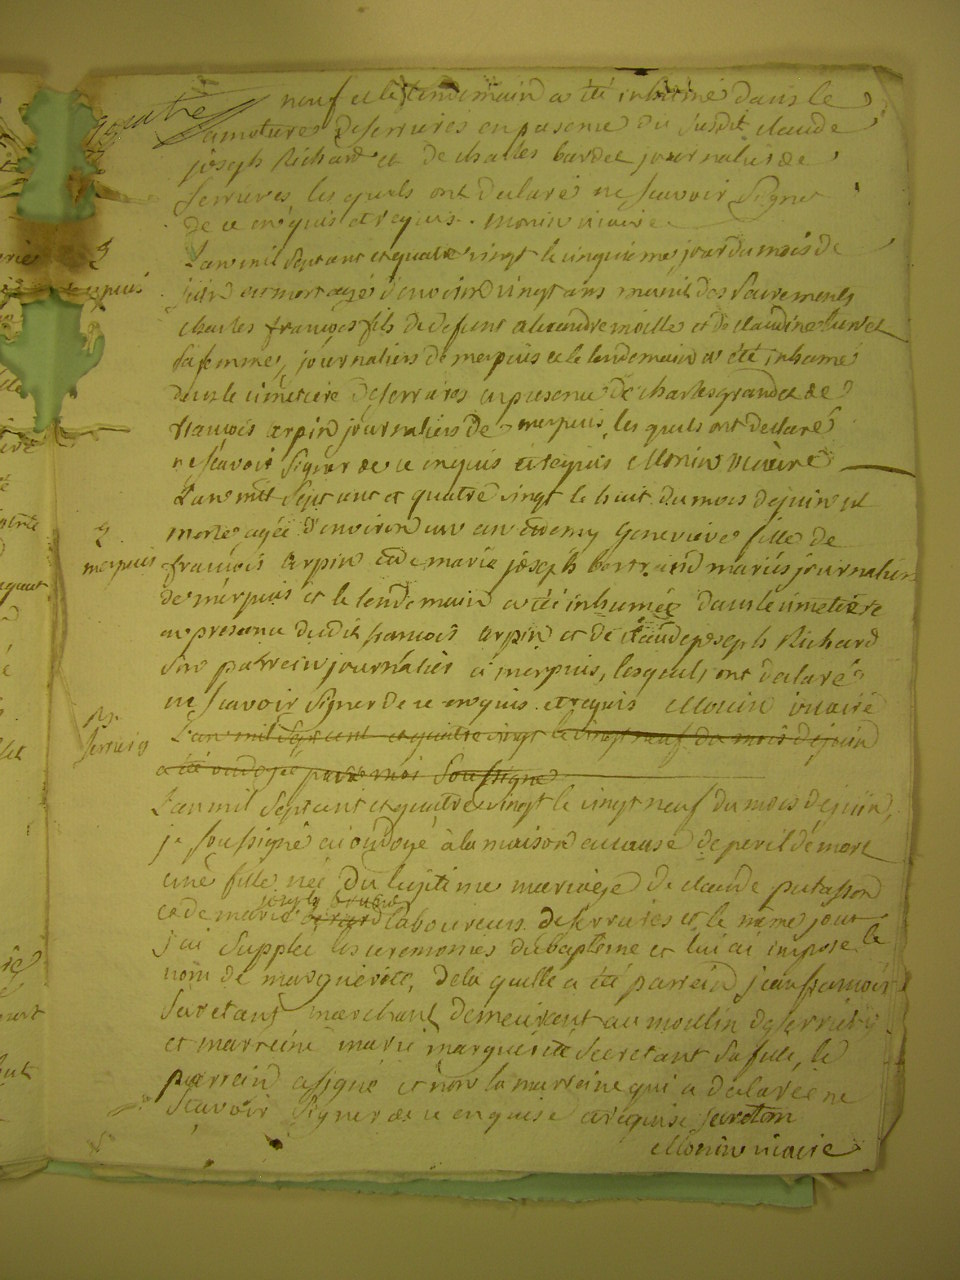 quatre
neuf et le lendemain a été inhumé dans le
cimetiere deferrieres en presence du susdit claude
joseph Richard et de charles bardet journalier de
ferrieres, lesquels ont declaré ne scavoir signer
de ce enquis et requis. Monin vicaire
L'an mil sept cent et quatre vingt le cinquieme jour du mois de
juin est mort agé d'environ vingt ans muni des sacrements
charles françois fils de defunt alexandre et de claudine
sa femme, journaliers de merpuis et le lendemain a été inhumé
dans le cimetiere deferrieres en presence de charles grandet et de
françois arpin journaliers de merpuis, lesquels ont declaré
ne scavoir signer de ce enquis et requis Monin vicaire
L'an mil sept cent et quatre vingt le huit du mois de juin est
morte agée d'environ un an et demy Genevieve fille de
merpuis
françois arpin et de marie joseph bertrand mariés journaliers
de merpuis et le lendemain a été inhumée dans le cimetiere
en presence dudit françois arpin et de claude joseph Richard
son parrein journalier à merpuis, lesquels ont declaré
ne scavoir signer de ce enquis et requis Monin vicaire
ferrieres
L'an mil sept cent et quatre vingt le vingt neuf du mois de juin
a été ondoyée par moi soussigné
L'an mil sept cent et quatre vingt le vingt neuf du mois de juin,
je soussigné ai ondoyé à la maison a cause de peril de mort
une fille née du legitime mariage de claude putasson
et de marie laboureurs deferrieres et le même jour
j'ai supplée les ceremonies du baptême et lui ai imposé le
nom de marguerite, de laquelle a été parrein jean françois
secretant marchant demeurent au moulin deferrieres
et marreine marie marguerite secretant sa fille, le
parrein a signé et non la marreine qui a declarée ne
scavoir signer de ce enquise et requise secretan
Monin vicaire